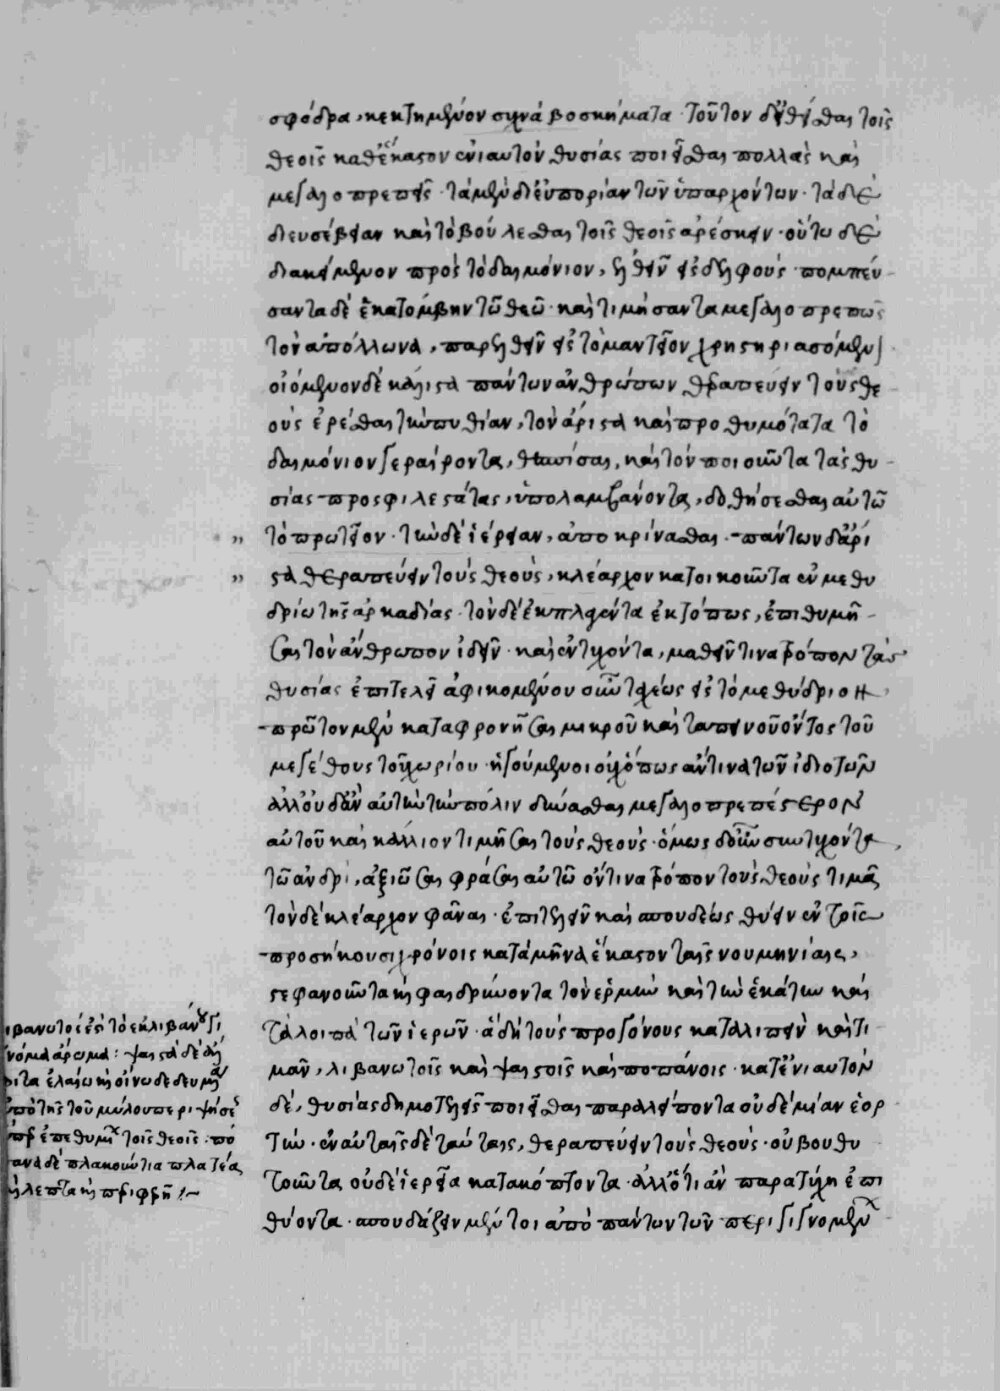 σφόδρα, κεκτημένον συχνὰ βοσκήματα· τοῦτον δ' εἰθίσθαι τοῖς
θεοῖς καθ' ἕκαστον ἐνιαυτὸν θυσίας ποιεῖσθαι πολλὰς καὶ
μεγαλοπρεπεῖς· τὰ μὲν δι' εὐπορίαν τῶν ὑπαρχόντων· τὰ δὲ
δι' εὐσέβειαν καὶ τὸ βούλεσθαι τοῖς θεοῖς ἀρέσκειν· οὕτω δὲ
διακείμενον πρὸς τὸ δαιμόνιον, ἐλθεῖν εἰς δελφούς· πομπεύ
σαντα δὲ ἑκατόμβην τῶ θεῶ· καὶ τιμήσαντα μεγαλοπρεπῶς
τὸν ἀπόλλωνα, παρελθεῖν εἰς τὸ μαντεῖον χρηστηριασόμενον
οἰόμενον δὲ κάλλιστα πάντων ἀνθρώπων θεραπεύειν τοὺς θε
οὺς ἐρέσθαι τὴν πυθίαν, τὸν ἄριστα καὶ προθυμότατα τὸ
δαιμόνιον γεραίροντα, θεσπίσαι, καὶ τὸν ποιοῦντα τὰς θυ
σίας προσφιλεστάτας, ὑπολαμβάνοντα, δοθήσεσθαι αὐτῶ
τὸ πρωτεῖον· τὴν δὲ ἱέρειαν, ἀποκρίνασθαι· πάντων δ' ἄρι
στα θεραπεύειν τοὺς θεοὺς, κλέαρχον κατοικοῦντα ἐν μεθυ
δρίω τῆς ἀρκαδίας· τὸν δὲ ἐκπλαγέντα ἐκτόπως, ἐπιθυμῆ
σαι τὸν ἄνθρωπον ἰδεῖν· καὶ ἐντυχόντα, μαθεῖν τίνα τρόπον τὰς
θυσίας ἐπιτελεῖ ἀφικόμενον οὖν ταχέως εἰς τὸ μεθύδριον
πρῶτον μὲν καταφρονῆσαι μικροῦ καὶ ταπεινοῦ ὄντος τοῦ
μεγέθους τοῦ χωρίου· ἡγούμενον οὐχ ὅπως ἄν τινα τῶν ἰδιοτῶν
ἀλλ' οὐδ' ἂν αὐτὴν τὴν πόλιν δύνασθαι μεγαλοπρεπέστερον
αὐτοῦ καὶ κάλλιον τιμῆσαι τοὺς θεούς· ὅμως δ' οὖν συντυχόντα
τῶ ἀνδρὶ, ἀξιῶσαι φράσαι αὐτῶ ὅντινα τρόπον τοὺς θεοὺς τιμᾶ
τὸν δὲ κλέαρχον φάναι· ἐπιτελεῖν καὶ σπουδέως θύειν ἐν τοῖς
προσήκουσι χρόνοις κατὰ μῆνα ἕκαστον ταῖς νουμηνίαις,
στεφανοῦντα καὶ φαιδρύνοντα τὸν ἑρμῆν καὶ τὴν ἑκάτην καὶ
τἄλοιπὰ τῶν ἱερῶν· ἃ δὴ τοὺς προγόνους καταλιπεῖν καὶ τι
μᾶν, λιβανωτοῖς καὶ ψαιστοῖς καὶ ποπάνοις· κατ' ἐνιαυτὸν
δὲ, θυσίας δημοτελεῖς ποιεῖσθαι παραλείποντα οὐδεμίαν ἑορ
τήν· ἐν αὐταῖς δὲ ταύταις, θεραπεύειν τοὺς θεοὺς· οὐ βουθυ
τοῦντα οὐδὲ ἱερεῖα κατακόπτοντα· ἀλλ' ὅ τι ἂν παρατύχη ἐπι
θύοντα· σπουδάζειν μέντοι ἀπὸ πάντων τῶν περιγιγνομένων
ιβανωτοί ἐστὶ τὸ ἐκ λιβάνου γι
νόμα ἄρωμα: ψαιστὰ δὲ ἄλφ
ιτα ἐλαίω καὶ οἴνω δεδευμένα
τοῖς θεοῖς· πό
πανα δὲ πλακούντια πλατέα
καὶ λεπτὰ καὶ περιφερῆ :~